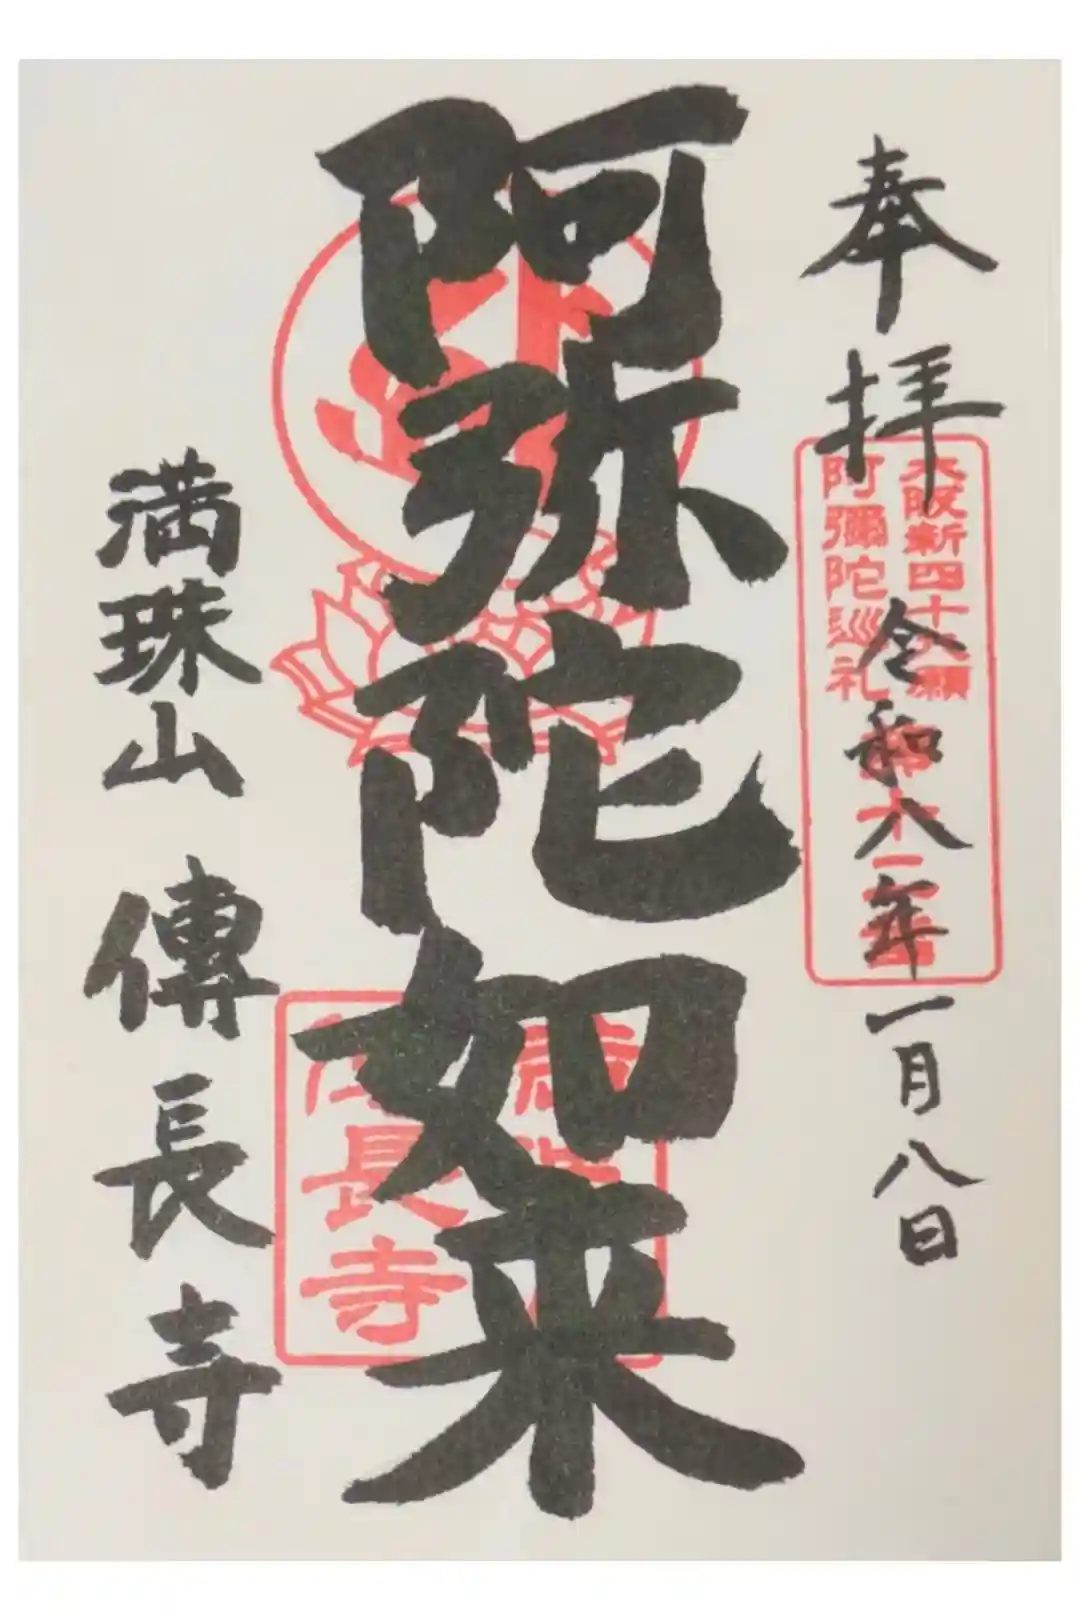 奉拝
大阪新四十八願
阿彌陀巡礼
令和八年一月八日
阿弥陀如来
長寺
満珠山 傳長寺